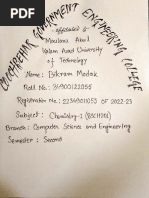 COOCHBEHAR GOVERNMENT ENGINEERING COLLEGE
Affiliated to
Maulana Abul
Kalam Azad University
of Technology
Name: Bikram Modak
Roll No.: 34900122055
Registration No.: 223490110055 OF 2022-23
Subject: Chemistry-1 (BSCH201)
Branch: Computer Science and Engineering
Semester: Second